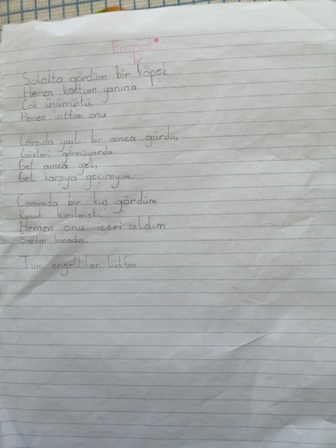 Empati
Sokakta gördüm bir köpek
Hemen koştum yanına
Çok üşümüştü
Hemen ısıttım onu
Çarşıda yaşlı bir amca gördü,
Gözleri görmüyordu
Gel amca gel,
Gel karşıya geçireyim.
Camımda bir kuş gördüm
Kanadı kırılmıştı
Hemen onu içeri aldım
Sardım
Tüm engelliler lütfen